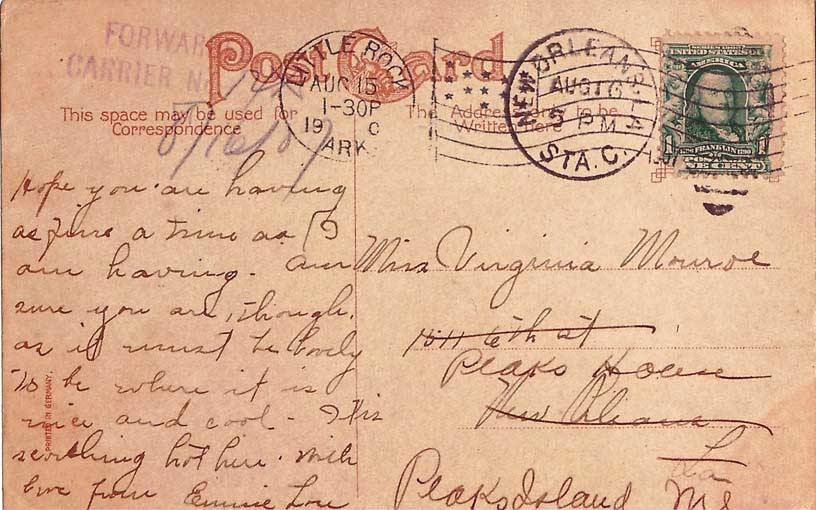 FORWAR
CARRIER N
Post Card
LITTLE ROCK
AUG 15
1-30P
19 C
ARK
NEW ORLEANS, LA
AUG 16
5 PM
STA. C.
SERIES 1902
UNITED STATES OF
AMERICA
FRANKLIN
ONE CENT
This space may be used for
Correspondence
The Address to be
Written here
8/16/07
Hope you are having
as fine a time as I
am having. Am
sure you are, though,
as it must be lovely
to be where it is
nice and cool - It is
scorching hot here. With
love from Emmie Lou
PRINTED IN GERMANY.
Miss Virginia Monroe
1511 6th st
Peaks House
New Orleans
La
Peaks Island Me